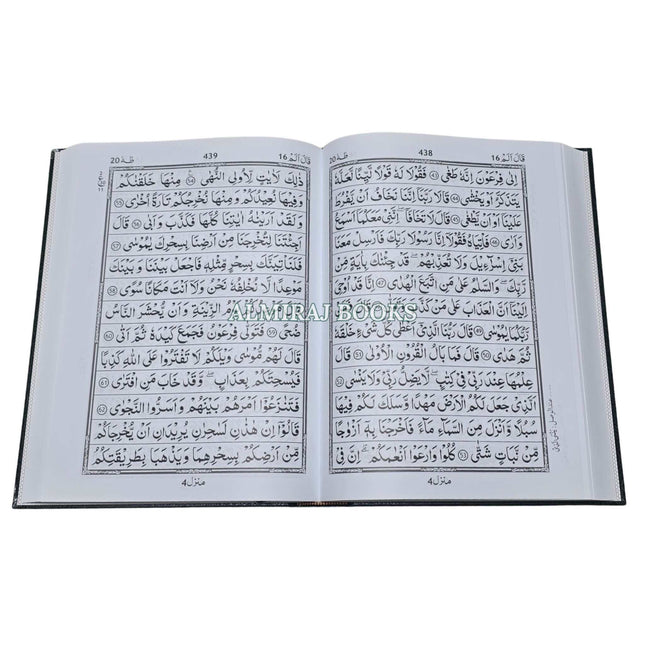 قَالَ اَلَمْ 16 438 طٰهٰ 20
اِلٰى فِرْعَوْنَ اِنَّهٗ طَغٰى 43 فَقُوْلَا لَهٗ قَوْلًا لَّيِّنًا لَّعَلَّهٗ
يَتَذَكَّرُ اَوْ يَخْشٰى 44 قَالَا رَبَّنَاۤ اِنَّنَا نَخَافُ اَنْ يَّفْرُطَ
عَلَيْنَاۤ اَوْ اَنْ يَّطْغٰى 45 قَالَ لَا تَخَافَاۤ اِنَّنِىْ مَعَكُمَاۤ اَسْمَعُ
وَاَرٰى 46 فَاْتِيٰهُ فَقُوْلَاۤ اِنَّا رَسُوْلَا رَبِّكَ فَاَرْسِلْ مَعَنَا
بَنِىْۤ اِسْرَآءِيْلَ وَلَا تُعَذِّبْهُمْ قَدْ جِئْنٰكَ بِاٰيَةٍ مِّنْ
رَّبِّكَ وَالسَّلٰمُ عَلٰى مَنِ اتَّبَعَ الْهُدٰى 47 اِنَّا قَدْ اُوْحِىَ
اِلَيْنَاۤ اَنَّ الْعَذَابَ عَلٰى مَنْ كَذَّبَ وَتَوَلّٰى 48 قَالَ فَمَنْ
رَّبُّكُمَا يٰمُوْسٰى 49 قَالَ رَبُّنَا الَّذِىْۤ اَعْطٰى كُلَّ شَىْءٍ خَلْقَهٗ
ثُمَّ هَدٰى 50 قَالَ فَمَا بَالُ الْقُرُوْنِ الْاُوْلٰى 51 قَالَ
عِلْمُهَا عِنْدَ رَبِّىْ فِىْ كِتٰبٍ لَا يَضِلُّ رَبِّىْ وَلَا يَنْسَى 52
الَّذِىْ جَعَلَ لَكُمُ الْاَرْضَ مَهْدًا وَّسَلَكَ لَكُمْ فِيْهَا
سُبُلًا وَّاَنْزَلَ مِنَ السَّمَآءِ مَآءً فَاَخْرَجْنَا بِهٖۤ اَزْوَاجًا
مِّنْ نَّبَاتٍ شَتّٰى 53 كُلُوْا وَارْعَوْا اَنْعَامَكُمْ اِنَّ فِىْ
منزل 4
قَالَ اَلَمْ 16 439 طٰهٰ 20
ذٰلِكَ لَاٰيٰتٍ لِّاُولِى النُّهٰى 54 مِنْهَا خَلَقْنٰكُمْ
وَفِيْهَا نُعِيْدُكُمْ وَمِنْهَا نُخْرِجُكُمْ تَارَةً اُخْرٰى 55
وَلَقَدْ اَرَيْنٰهُ اٰيٰتِنَا كُلَّهَا فَكَذَّبَ وَاَبٰى 56 قَالَ
اَجِئْتَنَا لِتُخْرِجَنَا مِنْ اَرْضِنَا بِسِحْرِكَ يٰمُوْسٰى 57
فَلَنَاْتِيَنَّكَ بِسِحْرٍ مِّثْلِهٖ فَاجْعَلْ بَيْنَنَا وَبَيْنَكَ
مَوْعِدًا لَّا نُخْلِفُهٗ نَحْنُ وَلَاۤ اَنْتَ مَكَانًا سُوًى 58
قَالَ مَوْعِدُكُمْ يَوْمُ الزِّيْنَةِ وَاَنْ يُّحْشَرَ النَّاسُ
ضُحًى 59 فَتَوَلّٰى فِرْعَوْنُ فَجَمَعَ كَيْدَهٗ ثُمَّ اَتٰى 60
قَالَ لَهُمْ مُّوْسٰى وَيْلَكُمْ لَا تَفْتَرُوْا عَلَى اللّٰهِ كَذِبًا
فَيُسْحِتَكُمْ بِعَذَابٍ وَقَدْ خَابَ مَنِ افْتَرٰى 61
فَتَنَازَعُوْۤا اَمْرَهُمْ بَيْنَهُمْ وَاَسَرُّوا النَّجْوٰى 62
قَالُوْۤا اِنْ هٰذٰنِ لَسٰحِرٰنِ يُرِيْدٰنِ اَنْ يُّخْرِجٰكُمْ
مِّنْ اَرْضِكُمْ بِسِحْرِهِمَا وَيَذْهَبَا بِطَرِيْقَتِكُمُ
منزل 4
ALMIRAJ BOOKS